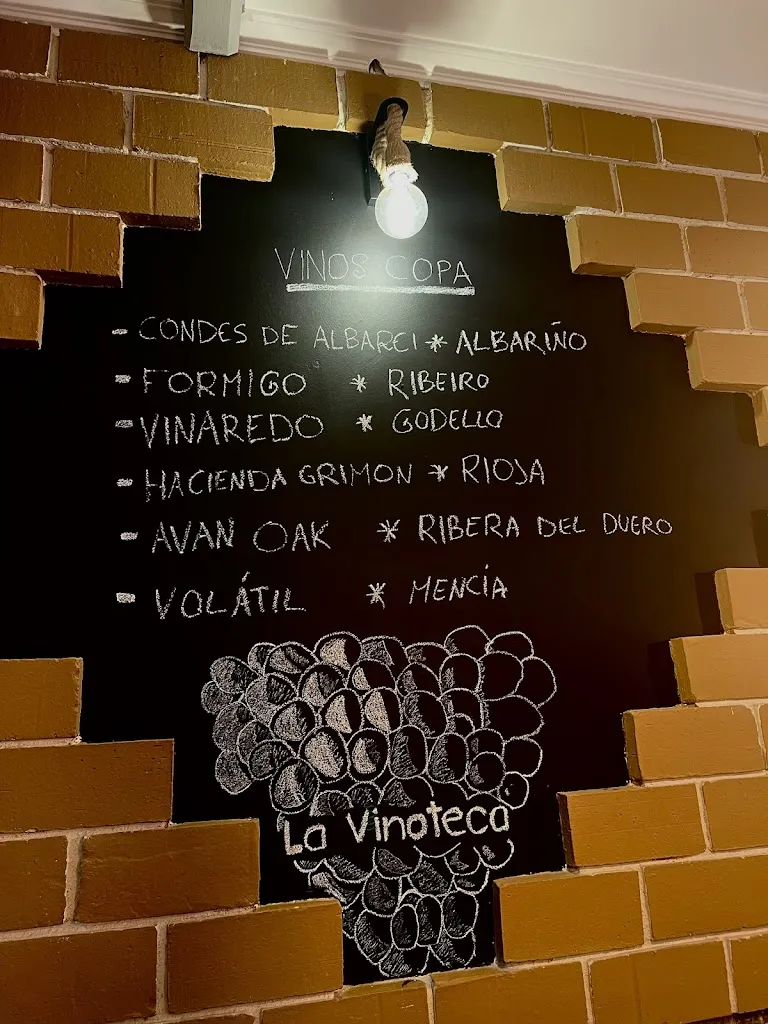 VINOS COPA
- CONDES DE ALBARCI * ALBARIÑO
- FORMIGO * RIBEIRO
- VINAREDO * GODELLO
- HACIENDA GRIMON * RIOJA
- AVAN OAK * RIBERA DEL DUERO
- VOLÁTIL * MENCÍA
La Vinoteca